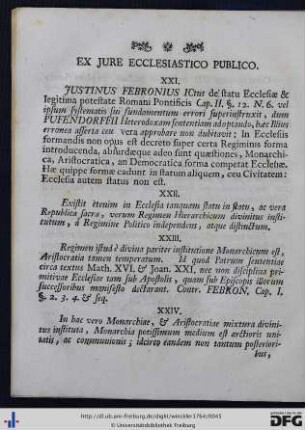 EX JURE ECCLESIASTICO PUBLICO.
XXI.
JUSTINUS FEBRONIUS ICtus de statu Ecclesiæ &
legitima potestate Romani Pontificis Cap. II. §. 12. N. 6. vel
ipsum systematis sui fundamentum errori superinstruxit, dum
PUFENDORFFII Heterodoxam sententiam adoptando, hæc illius
erronea asserta ceu vera approbare non dubitavit: In Ecclesiis
formandis non opus est decreto super certa Regiminis forma
introducenda, absurdæque adeo sunt quæstiones, Monarchi-
ca, Aristocratica, an Democratica forma competat Ecclesiæ.
Hæ quippe formæ cadunt in statum aliquem, ceu Civitatem:
Ecclesia autem status non est.
XXII.
Existit etenim in Ecclesia tanquam statu in statu, ac vera
Republica sacra, verum Regimen Hierarchicum divinitus insti-
tutum, à Regimine Politico independens, atque distinctum.
XXIII.
Regimen istud è divina pariter institutione Monarchicum est,
Aristocratia tamen temperatum. Id quod Patrum sententiæ
circa textus Math. XVI. & Joan. XXI. nec non disciplina pri-
mitivæ Ecclesiæ tam sub Apostolis, quam sub Episcopis illorum
successoribus manifesto declarant. Contr. FEBRON. Cap. I.
§. 2. 3. 4. & seq.
XXIV.
In hoc vero Monarchiæ, & Aristocratiæ mixtura divini-
tus instituta, Monarchia potissimum medium est arctioris uni-
tatis, ac communionis; idcirco eandem non tantum posteriori-
bus,
http://dl.ub.uni-freiburg.de/diglit/winckler1764/0045
© Universitätsbibliothek Freiburg
DFG